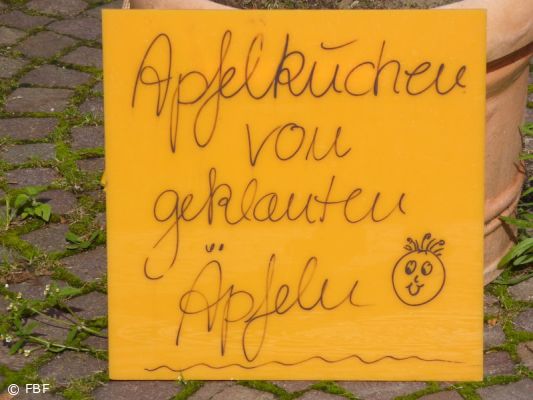 Apfelkuchen
von
geklauten
Äpfeln
© FBF